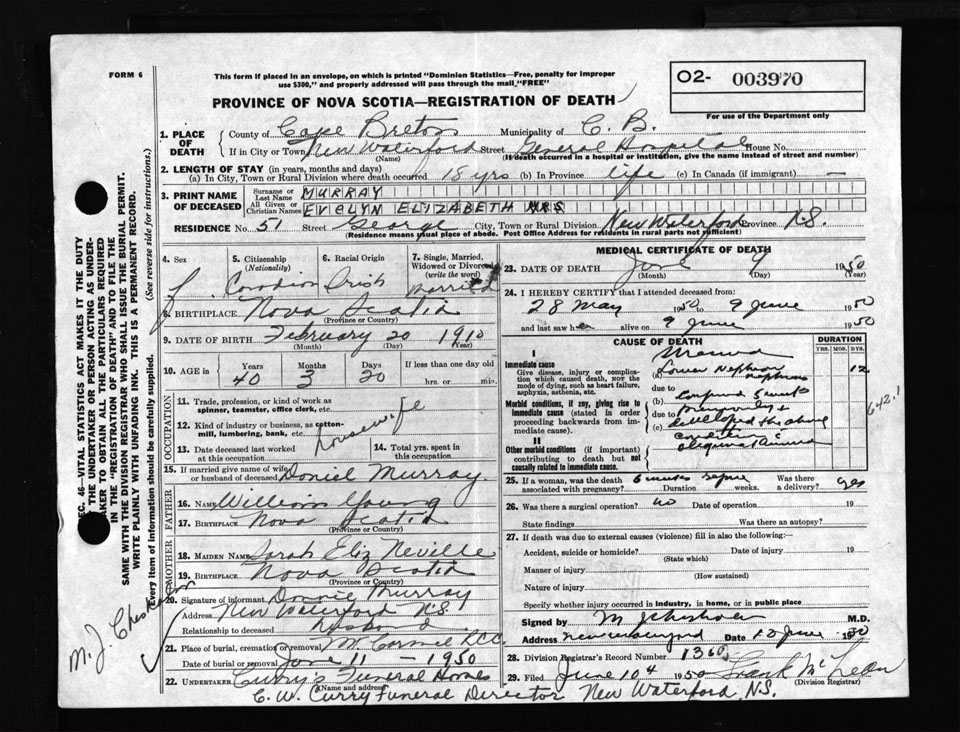 FORM 6
This form if placed in an envelope, on which is printed "Dominion Statistics—Free, penalty for improper
use $300," and properly addressed will pass through the mail "FREE"
O2- 003970
For use of the Department only
PROVINCE OF NOVA SCOTIA—REGISTRATION OF DEATH
1. PLACE OF DEATH County of Cape Breton Municipality of C. B.
If in City or Town New Waterford Street General Hospital House No.
(Name) (If death occurred in a hospital or institution, give the name instead of street and number)
2. LENGTH OF STAY (in years, months and days)
(a) In City, Town or Rural Division where death occurred 18 yrs (b) In Province life (c) In Canada (if immigrant) —
3. PRINT NAME OF DECEASED Surname or Last Name MURRAY
All Given or Christian Names EVELYN ELIZABETH MRS
RESIDENCE No. 51 Street George City, Town or Rural Division New Waterford Province N.S.
(Residence means usual place of abode. Post Office Address for residents in rural parts not sufficient)
4. Sex f.
5. Citizenship (Nationality) Canadian
6. Racial Origin Irish
7. Single, Married, Widowed or Divorced (write the word) Married
8. BIRTHPLACE Nova Scotia
(Province or Country)
9. DATE OF BIRTH February 20 1910
(Month) (Day) (Year)
10. AGE in Years 40 Months 3 Days 20 If less than one day old hrs. or min.
OCCUPATION
11. Trade, profession, or kind of work as spinner, teamster, office clerk, etc.
12. Kind of industry or business, as cotton-mill, lumbering, bank, etc. housewife
13. Date deceased last worked at this occupation
14. Total yrs. spent in this occupation
15. If married give name of wife or husband of deceased Daniel Murray.
FATHER
16. Name William Young
17. Birthplace Nova Scotia
(Province or Country)
MOTHER
18. Maiden Name Sarah Eliz Neville
19. Birthplace Nova Scotia
(Province or Country)
20. Signature of informant Murray
Address New Waterford N.S.
Relationship to deceased husband
21. Place of burial, cremation or removal Mt Carmel R.C.C.
Date of burial or removal June 11 — 1950
22. UNDERTAKER Curry's Funeral Homes
C. W. Curry Funeral Director New Waterford, N.S.
MEDICAL CERTIFICATE OF DEATH
23. DATE OF DEATH June 9 1950
(Month) (Day) (Year)
24. I HEREBY CERTIFY that I attended deceased from:
28 May 1950 to 9 June 1950
and last saw her alive on 9 June 1950
CAUSE OF DEATH
DURATION
YRS. MOS. DYS.
I
Immediate cause
Give disease, injury or complication which caused death, NOT the mode of dying, such as heart failure, asphyxia, asthenia, etc.
(a) Lower Nephron 12
nephrosis
due to
Morbid conditions, if any, giving rise to immediate cause (stated in order proceeding backwards from immediate cause).
(b)
due to
(c) developed the above
II
Other morbid conditions (if important) contributing to death but not causally related to immediate cause.
642.1
25. If a woman, was the death associated with pregnancy? Duration weeks. Was there a delivery? yes
26. Was there a surgical operation? no Date of operation 19
State findings Was there an autopsy?
27. If death was due to external causes (violence) fill in also the following:—
Accident, suicide or homicide? Date of injury 19
(State which)
Manner of injury
(How sustained)
Nature of injury
Specify whether injury occurred in industry, in home, or in public place
Signed by M J Chisholm M.D.
Address New Waterford Date 12 June 1950
28. Division Registrar's Record Number 1360
29. Filed June 10 1950 Frank McLean
(Division Registrar)
SEC. 46—VITAL STATISTICS ACT MAKES IT THE DUTY
OF THE UNDERTAKER OR PERSON ACTING AS UNDERTAKER TO OBTAIN ALL THE PARTICULARS REQUIRED
IN THE "REGISTRATION OF DEATH" AND TO FILE THE
SAME WITH THE DIVISION REGISTRAR WHO SHALL ISSUE THE BURIAL PERMIT.
WRITE PLAINLY WITH UNFADING INK. THIS IS A PERMANENT RECORD.
Every item of information should be carefully supplied. (See reverse side for instructions.)
M. J. Chisholm